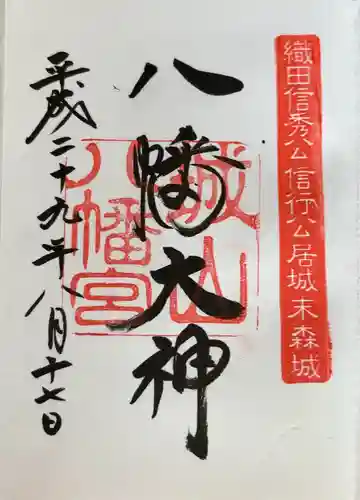 織田信秀公信行公居城末森城
八幡大神
城山八幡宮
平成二十九年八月十七日